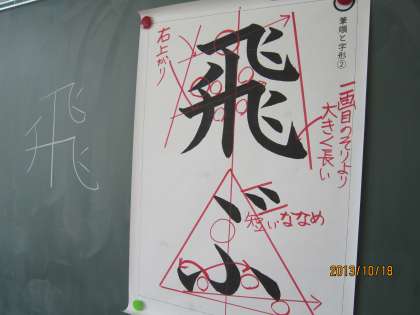 筆順と字形②
飛ぶ
右上がり
一画目のそりより
大きく長い
短いななめ
飛
2013/10/18